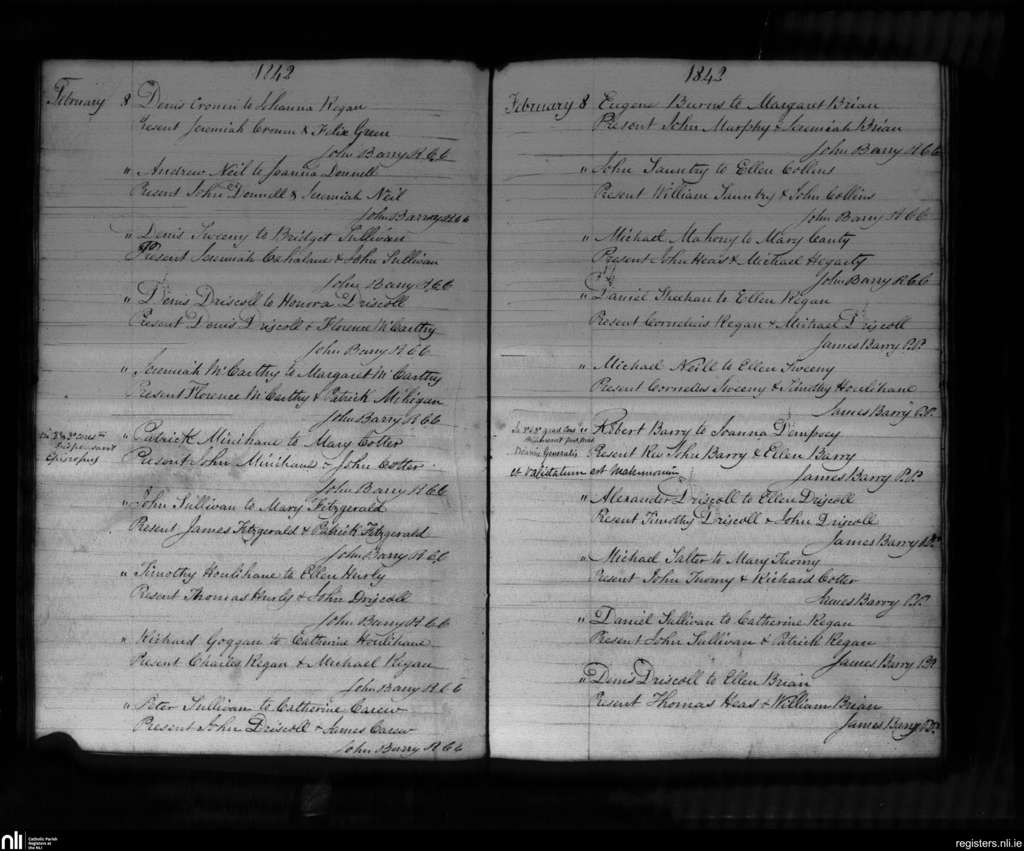 1842
February 8 Denis Cronin to Johanna Regan
Present Jeremiah Cronin & Felix Green
John Barry R C C
" Andrew Neil to Joanna Donnell
Present John Donnell & Jeremiah Neil
John Barry R C C
" Denis Sweeny to Bridget Sullivan
Present Jeremiah Cahalane & John Sullivan
John Barry R C C
" Denis Driscoll to Honora Driscoll
Present Denis Driscoll & Florence McCarthy
John Barry R C C
" Jeremiah McCarthy to Margaret McCarthy
Present Florence McCarthy & Patrick Mihigan
John Barry R C C
" Patrick Minihane to Mary Cotter
Present John Minihane & John Cotter
John Barry R C C
Episcopus
" John Sullivan to Mary Fitzgerald
Present James Fitzgerald & Patrick Fitzgerald
John Barry R C C
" Timothy Houlihane to Ellen Hurly
Present Thomas Hurly & John Driscoll
John Barry R C C
" Richard Goggan to Catherine Houlihane
Present Charles Regan & Michael Regan
John Barry R C C
" Peter Sullivan to Catherine Carew
Present John Driscoll & James Carew
John Barry R C C
1842
February 8 Eugene Burns to Margaret Brian
Present John Murphy & Jeremiah Brian
John Barry R C C
" John Tauntry to Ellen Collins
Present William Tauntry & John Collins
John Barry R C C
" Michael Mahony to Mary Canty
Present John Heas & Michael Hegarty
John Barry R C C
" Daniel Sheehan to Ellen Regan
Present Cornelius Regan & Michael Driscoll
James Barry P.P.
" Michael Neill to Ellen Sweeny
Present Cornelius Sweeny & Timothy Houlihane
James Barry P.P.
" Robert Barry to Joanna Dempsey
Present Rev John Barry & Ellen Barry
James Barry P.P.
Generalis
et validatum est matrimonium
" Alexander Driscoll to Ellen Driscoll
Present Timothy Driscoll & John Driscoll
James Barry P.P.
" Michael Salter to Mary Twomy
Present John Twomy & Richard Cotter
James Barry P.P.
" Daniel Sullivan to Catherine Regan
Present John Sullivan & Patrick Regan
James Barry P.P.
" Denis Driscoll to Ellen Brian
Present Thomas Heas & William Brian
James Barry P.P.
nli Catholic Parish
Registers at
the NLI
registers.nli.ie